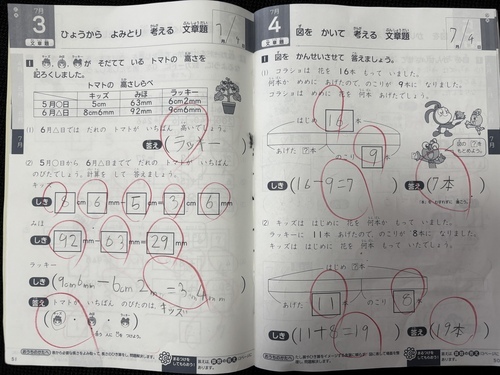 7月
3
文章題
ひょうから よみとり 考える 文章題
7/9
1 が そだてて いる トマトの 高さを
記ろくしました。
トマトの高さしらべ
キッズ みほ ラッキー
5月〇日 5cm 63mm 6cm2mm
6月△日 8cm6mm 92mm 9cm6mm
(1) 6月△日では だれの トマトが いちばん 高いでしょう。
答え (ラッキー)
(2) 5月〇日から 6月△日までで だれの トマトが いちばん
のびたでしょう。計算を して 答えましょう。
キッズ
しき 8 cm 6 mm - 5 cm = 3 cm 6 mm
みほ
しき 92 mm - 63 mm = 29 mm
ラッキー
しき (9cm6mm-6cm2mm=3cm4mm)
答え トマトが いちばん のびたのは、キッズ
7月
4
文章題
図を かいて 考える 文章題
7/9
1 図を かんせいさせて 答えましょう。
(1) コラショは 花を 16本 もって いました。
何本か あげたので、のこりが 9本に なりました。
コラショは 花を 何本 あげたでしょう。
はじめ 16本
あげた ?本 のこり 9本
しき (16-9=7)
答え (7本)
(2) キッズは はじめに 花を 何本か もって いました。
ラッキーに 11本 あげたので、のこりが 8本に なりました。
キッズは はじめに 花を 何本 もって いたでしょう。
はじめ ?本
あげた 11本 のこり 8本
しき (11+8=19)
答え (19本)